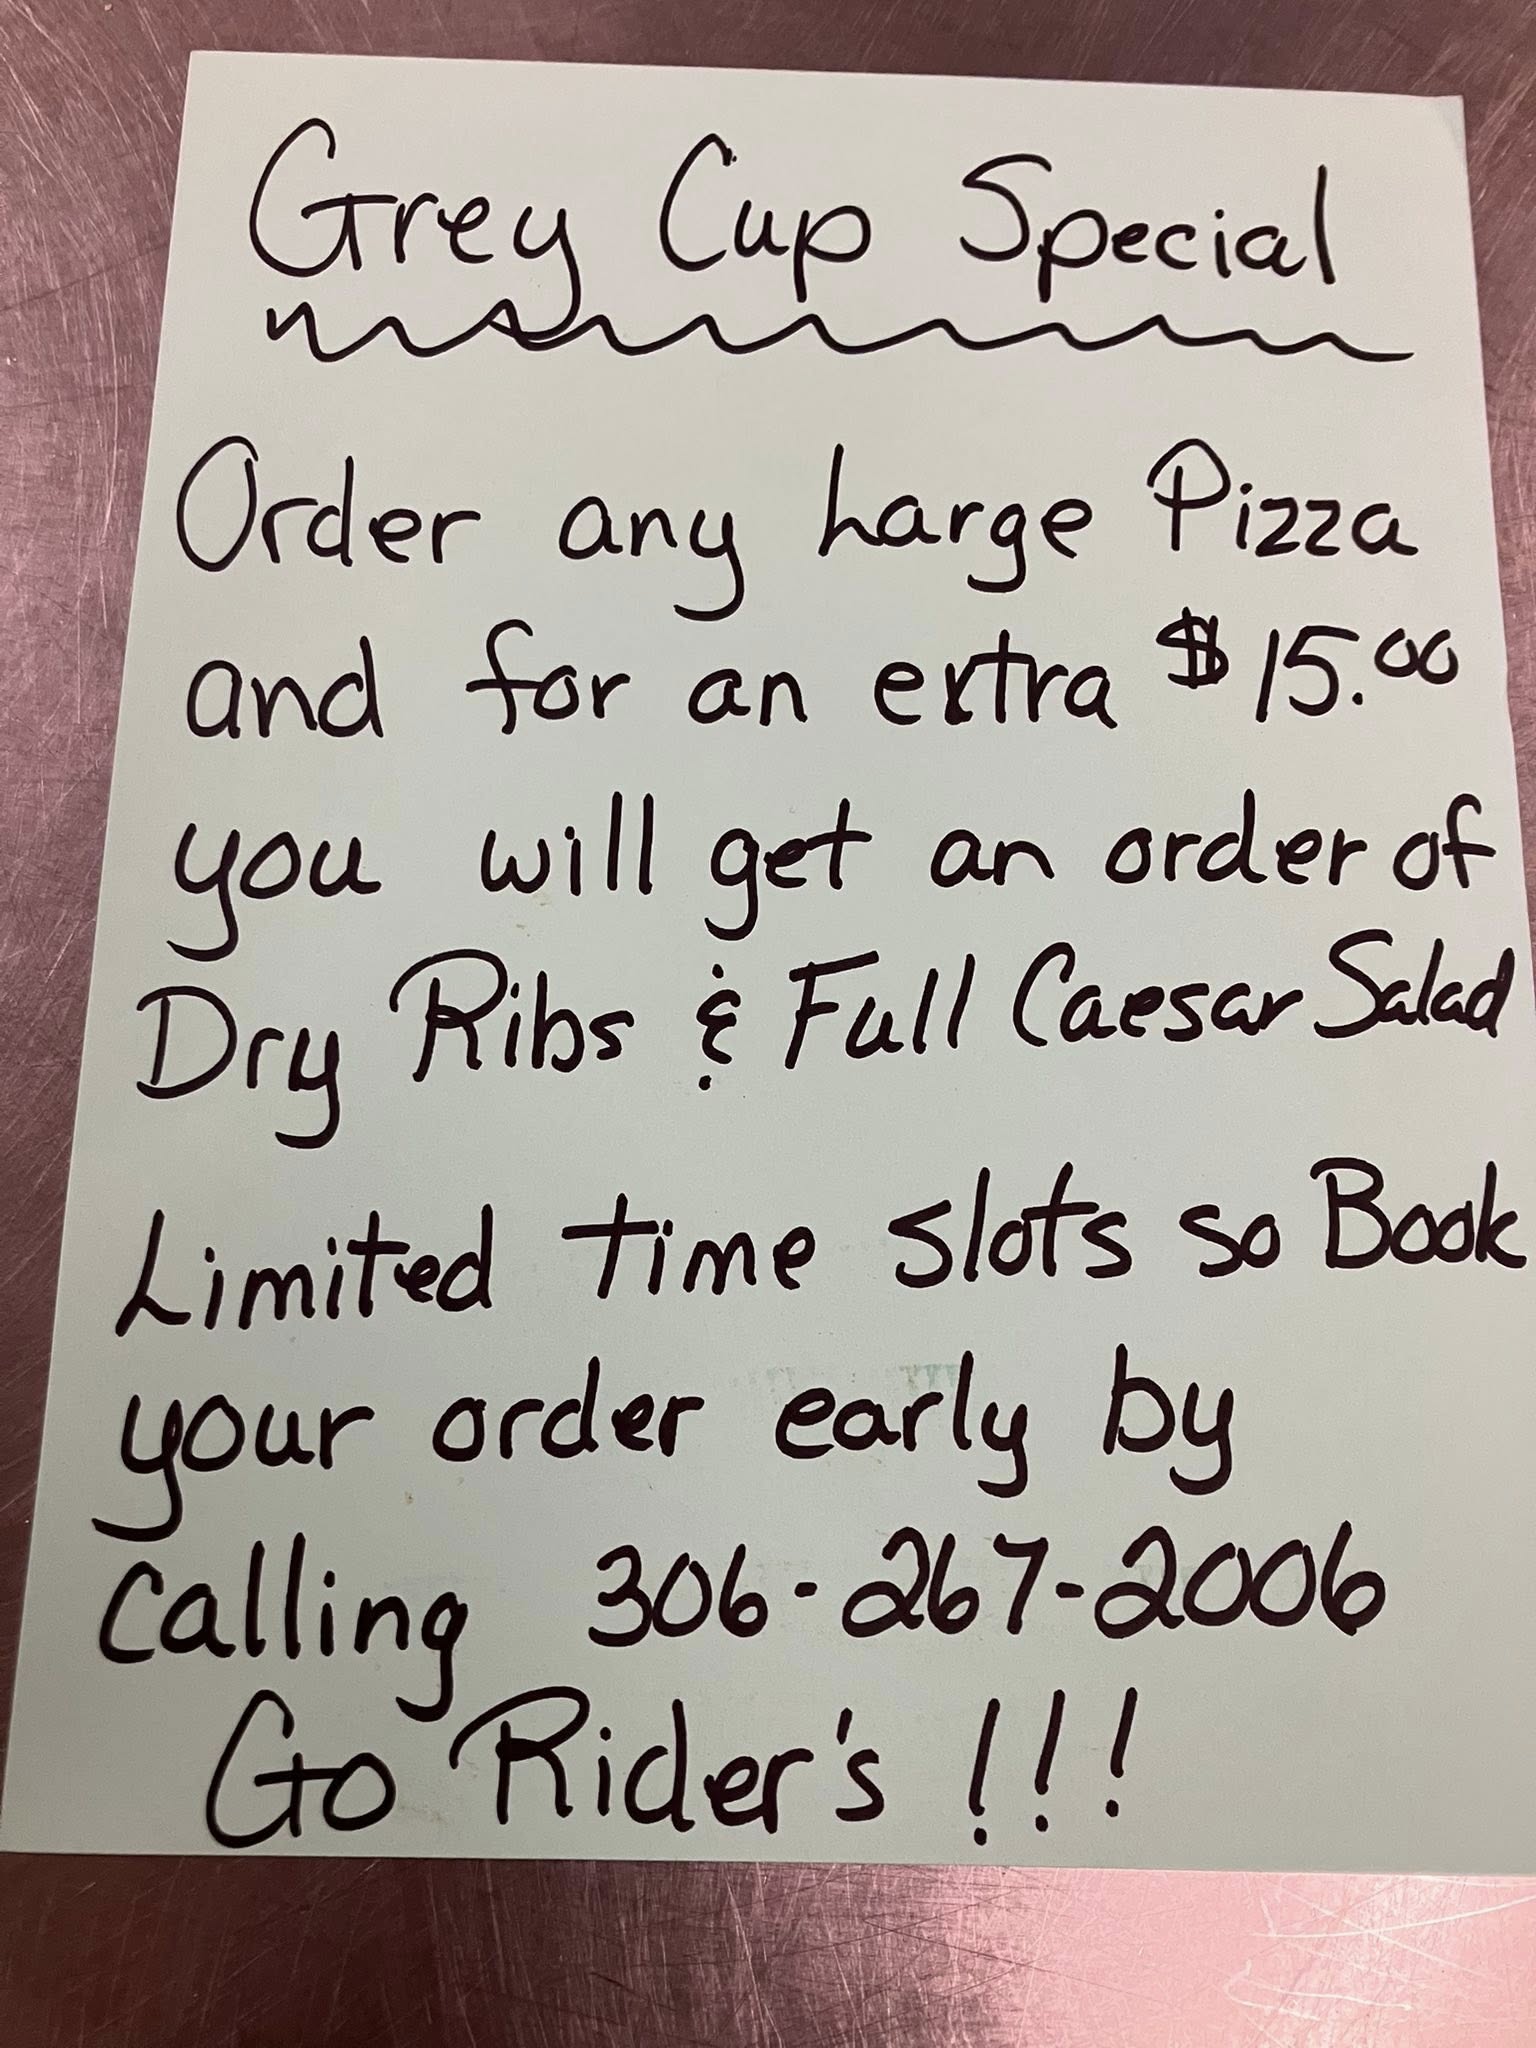 Grey Cup Special
Order any Large Pizza
and for an extra $15.00
you will get an order of
Dry Ribs & Full Caesar Salad
Limited time slots so Book
your order early by
calling 306-267-2006
Go Rider's !!!